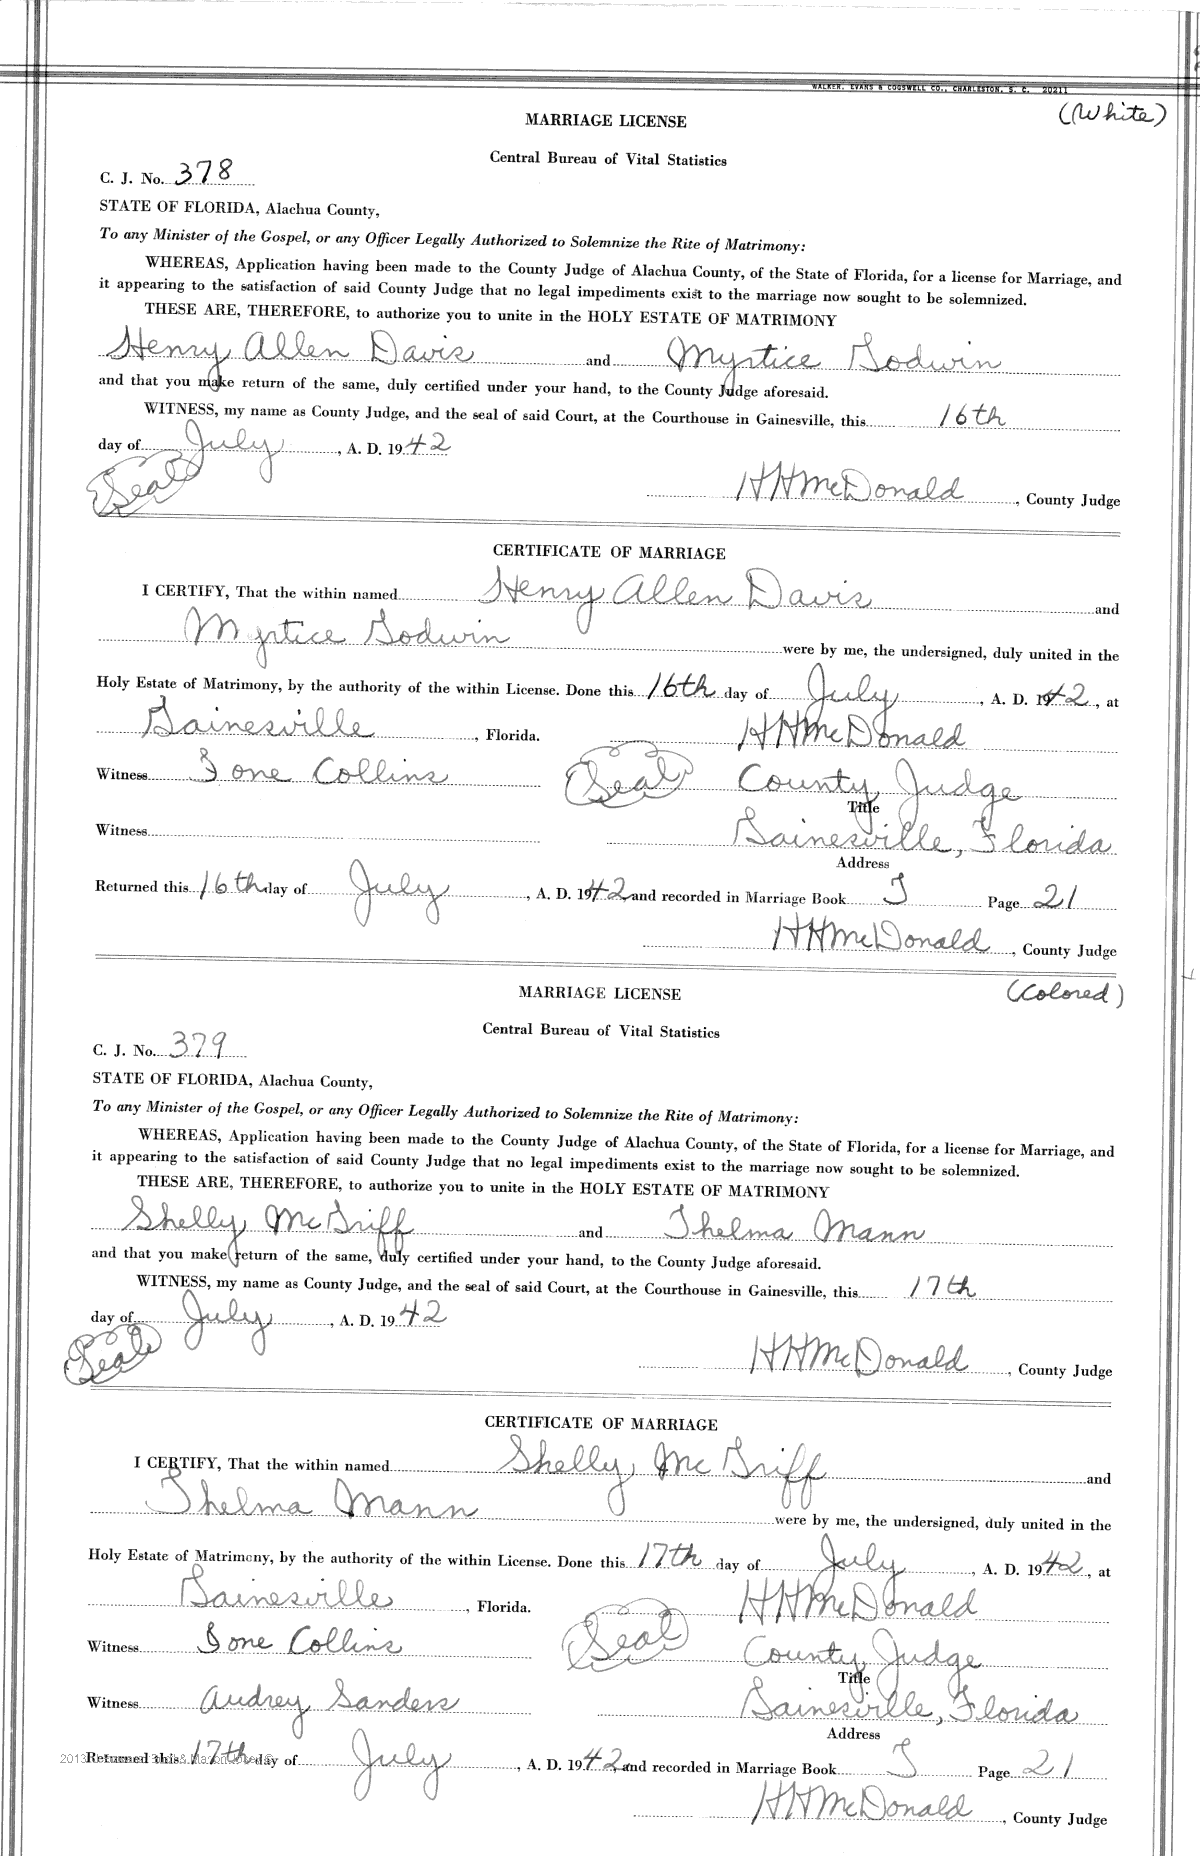 WALKER, EVANS & COGSWELL CO., CHARLESTON, S. C. 20211
(White)
MARRIAGE LICENSE
Central Bureau of Vital Statistics
C. J. No. 378
STATE OF FLORIDA, Alachua County,
To any Minister of the Gospel, or any Officer Legally Authorized to Solemnize the Rite of Matrimony:
WHEREAS, Application having been made to the County Judge of Alachua County, of the State of Florida, for a license for Marriage, and
it appearing to the satisfaction of said County Judge that no legal impediments exist to the marriage now sought to be solemnized.
THESE ARE, THEREFORE, to authorize you to unite in the HOLY ESTATE OF MATRIMONY
Henry Allen Davis and Myrtice Godwin
and that you make return of the same, duly certified under your hand, to the County Judge aforesaid.
WITNESS, my name as County Judge, and the seal of said Court, at the Courthouse in Gainesville, this 16th
day of July, A. D. 1942
Seal
HHMcDonald, County Judge
CERTIFICATE OF MARRIAGE
I CERTIFY, That the within named Henry Allen Davis and
Myrtice Godwin were by me, the undersigned, duly united in the
Holy Estate of Matrimony, by the authority of the within License. Done this 16th day of July, A. D. 1942, at
Gainesville, Florida. HHMcDonald
Witness Ione Collins Seal County Judge
Title
Witness Gainesville, Florida
Address
Returned this 16th day of July, A. D. 1942 and recorded in Marriage Book J Page 21
HHMcDonald, County Judge
(Colored)
MARRIAGE LICENSE
Central Bureau of Vital Statistics
C. J. No. 379
STATE OF FLORIDA, Alachua County,
To any Minister of the Gospel, or any Officer Legally Authorized to Solemnize the Rite of Matrimony:
WHEREAS, Application having been made to the County Judge of Alachua County, of the State of Florida, for a license for Marriage, and
it appearing to the satisfaction of said County Judge that no legal impediments exist to the marriage now sought to be solemnized.
THESE ARE, THEREFORE, to authorize you to unite in the HOLY ESTATE OF MATRIMONY
Shelly McGriff and Thelma Mann
and that you make return of the same, duly certified under your hand, to the County Judge aforesaid.
WITNESS, my name as County Judge, and the seal of said Court, at the Courthouse in Gainesville, this 17th
day of July, A. D. 1942
Seal
HHMcDonald, County Judge
CERTIFICATE OF MARRIAGE
I CERTIFY, That the within named Shelly McGriff and
Thelma Mann were by me, the undersigned, duly united in the
Holy Estate of Matrimony, by the authority of the within License. Done this 17th day of July, A. D. 1942, at
Gainesville, Florida. HHMcDonald
Witness Ione Collins Seal County Judge
Title
Witness Audrey Sanders Gainesville, Florida
Address
Returned this 17th day of July, A. D. 1942 and recorded in Marriage Book J Page 21
HHMcDonald, County Judge